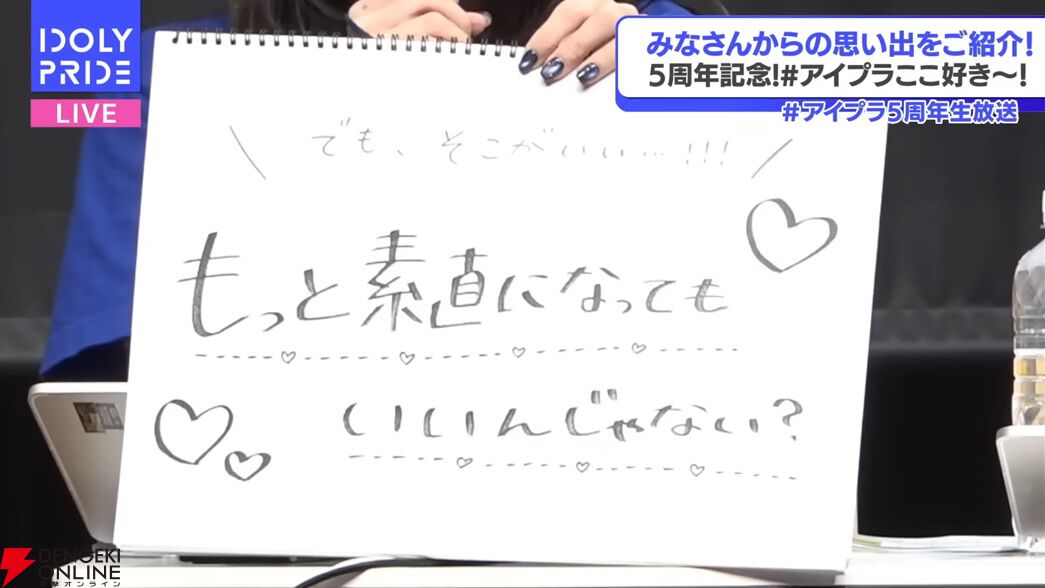 IDOLY
PRIDE
LIVE
みなさんからの思い出をご紹介!
5周年記念!#アイプラここ好き〜!
#アイプラ5周年生放送
でも、そこがいい…!!!
もっと素直になっても
いいんじゃない?
DENGEKI
ONLINE
電撃オンライン